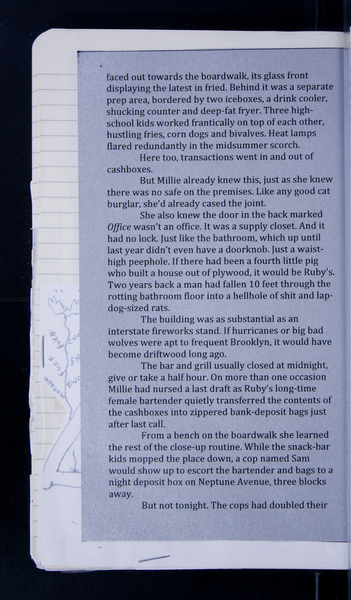 faced out towards the boardwalk, its glass front
displaying the latest in fried. Behind it was a separate
prep area, bordered by two iceboxes, a drink cooler,
shucking counter and deep-fat fryer. Three high-
school kids worked frantically on top of each other,
hustling fries, corn dogs and bivalves. Heat lamps
flared redundantly in the midsummer scorch.
Here too, transactions went in and out of
cashboxes.
But Millie already knew this, just as she knew
there was no safe on the premises. Like any good cat
burglar, she'd already cased the joint.
She also knew the door in the back marked
Office wasn't an office. It was a supply closet. And it
had no lock. Just like the bathroom, which up until
last year didn't even have a doorknob. Just a waist-
high peephole. If there had been a fourth little pig
who built a house out of plywood, it would be Ruby's.
Two years back a man had fallen 10 feet through the
rotting bathroom floor into a hellhole of shit and lap-
dog-sized rats.
The building was as substantial as an
interstate fireworks stand. If hurricanes or big bad
wolves were apt to frequent Brooklyn, it would have
become driftwood long ago.
The bar and grill usually closed at midnight,
give or take a half hour. On more than one occasion
Millie had nursed a last draft as Ruby's long-time
female bartender quietly transferred the contents of
the cashboxes into zippered bank-deposit bags just
after last call.
From a bench on the boardwalk she learned
the rest of the close-up routine. While the snack-bar
kids mopped the place down, a cop named Sam
would show up to escort the bartender and bags to a
night deposit box on Neptune Avenue, three blocks
away.
But not tonight. The cops had doubled their